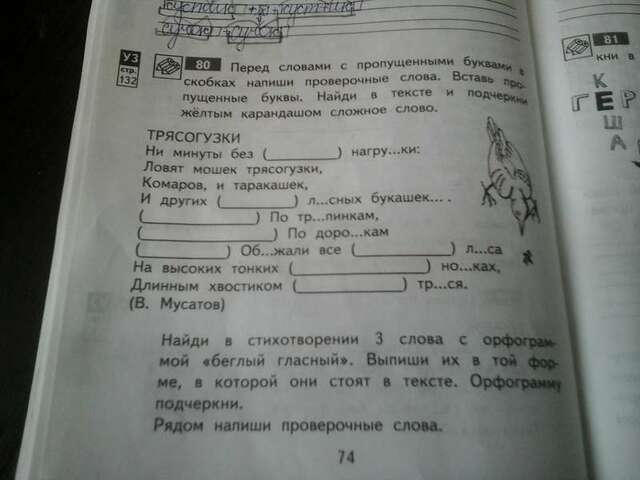 УЗ
стр.
132
80 Перед словами с пропущенными буквами в
скобках напиши проверочные слова. Вставь про-
пущенные буквы. Найди в тексте и подчеркни
жёлтым карандашом сложное слово.
ТРЯСОГУЗКИ
Ни минуты без ( ) нагру...ки:
Ловят мошек трясогузки,
Комаров, и таракашек,
И других ( ) л...сных букашек... .
( ) По тр...пинкам,
( ) По доро...кам
( ) Об...жали все ( ) л...са
На высоких тонких ( ) но...ках,
Длинным хвостиком ( ) тр...ся.
(В. Мусатов)
Найди в стихотворении 3 слова с орфограм-
мой «беглый гласный». Выпиши их в той фор-
ме, в которой они стоят в тексте. Орфограмму
подчеркни.
Рядом напиши проверочные слова.
74
81
кни в
К
ГЕР
Ш
А